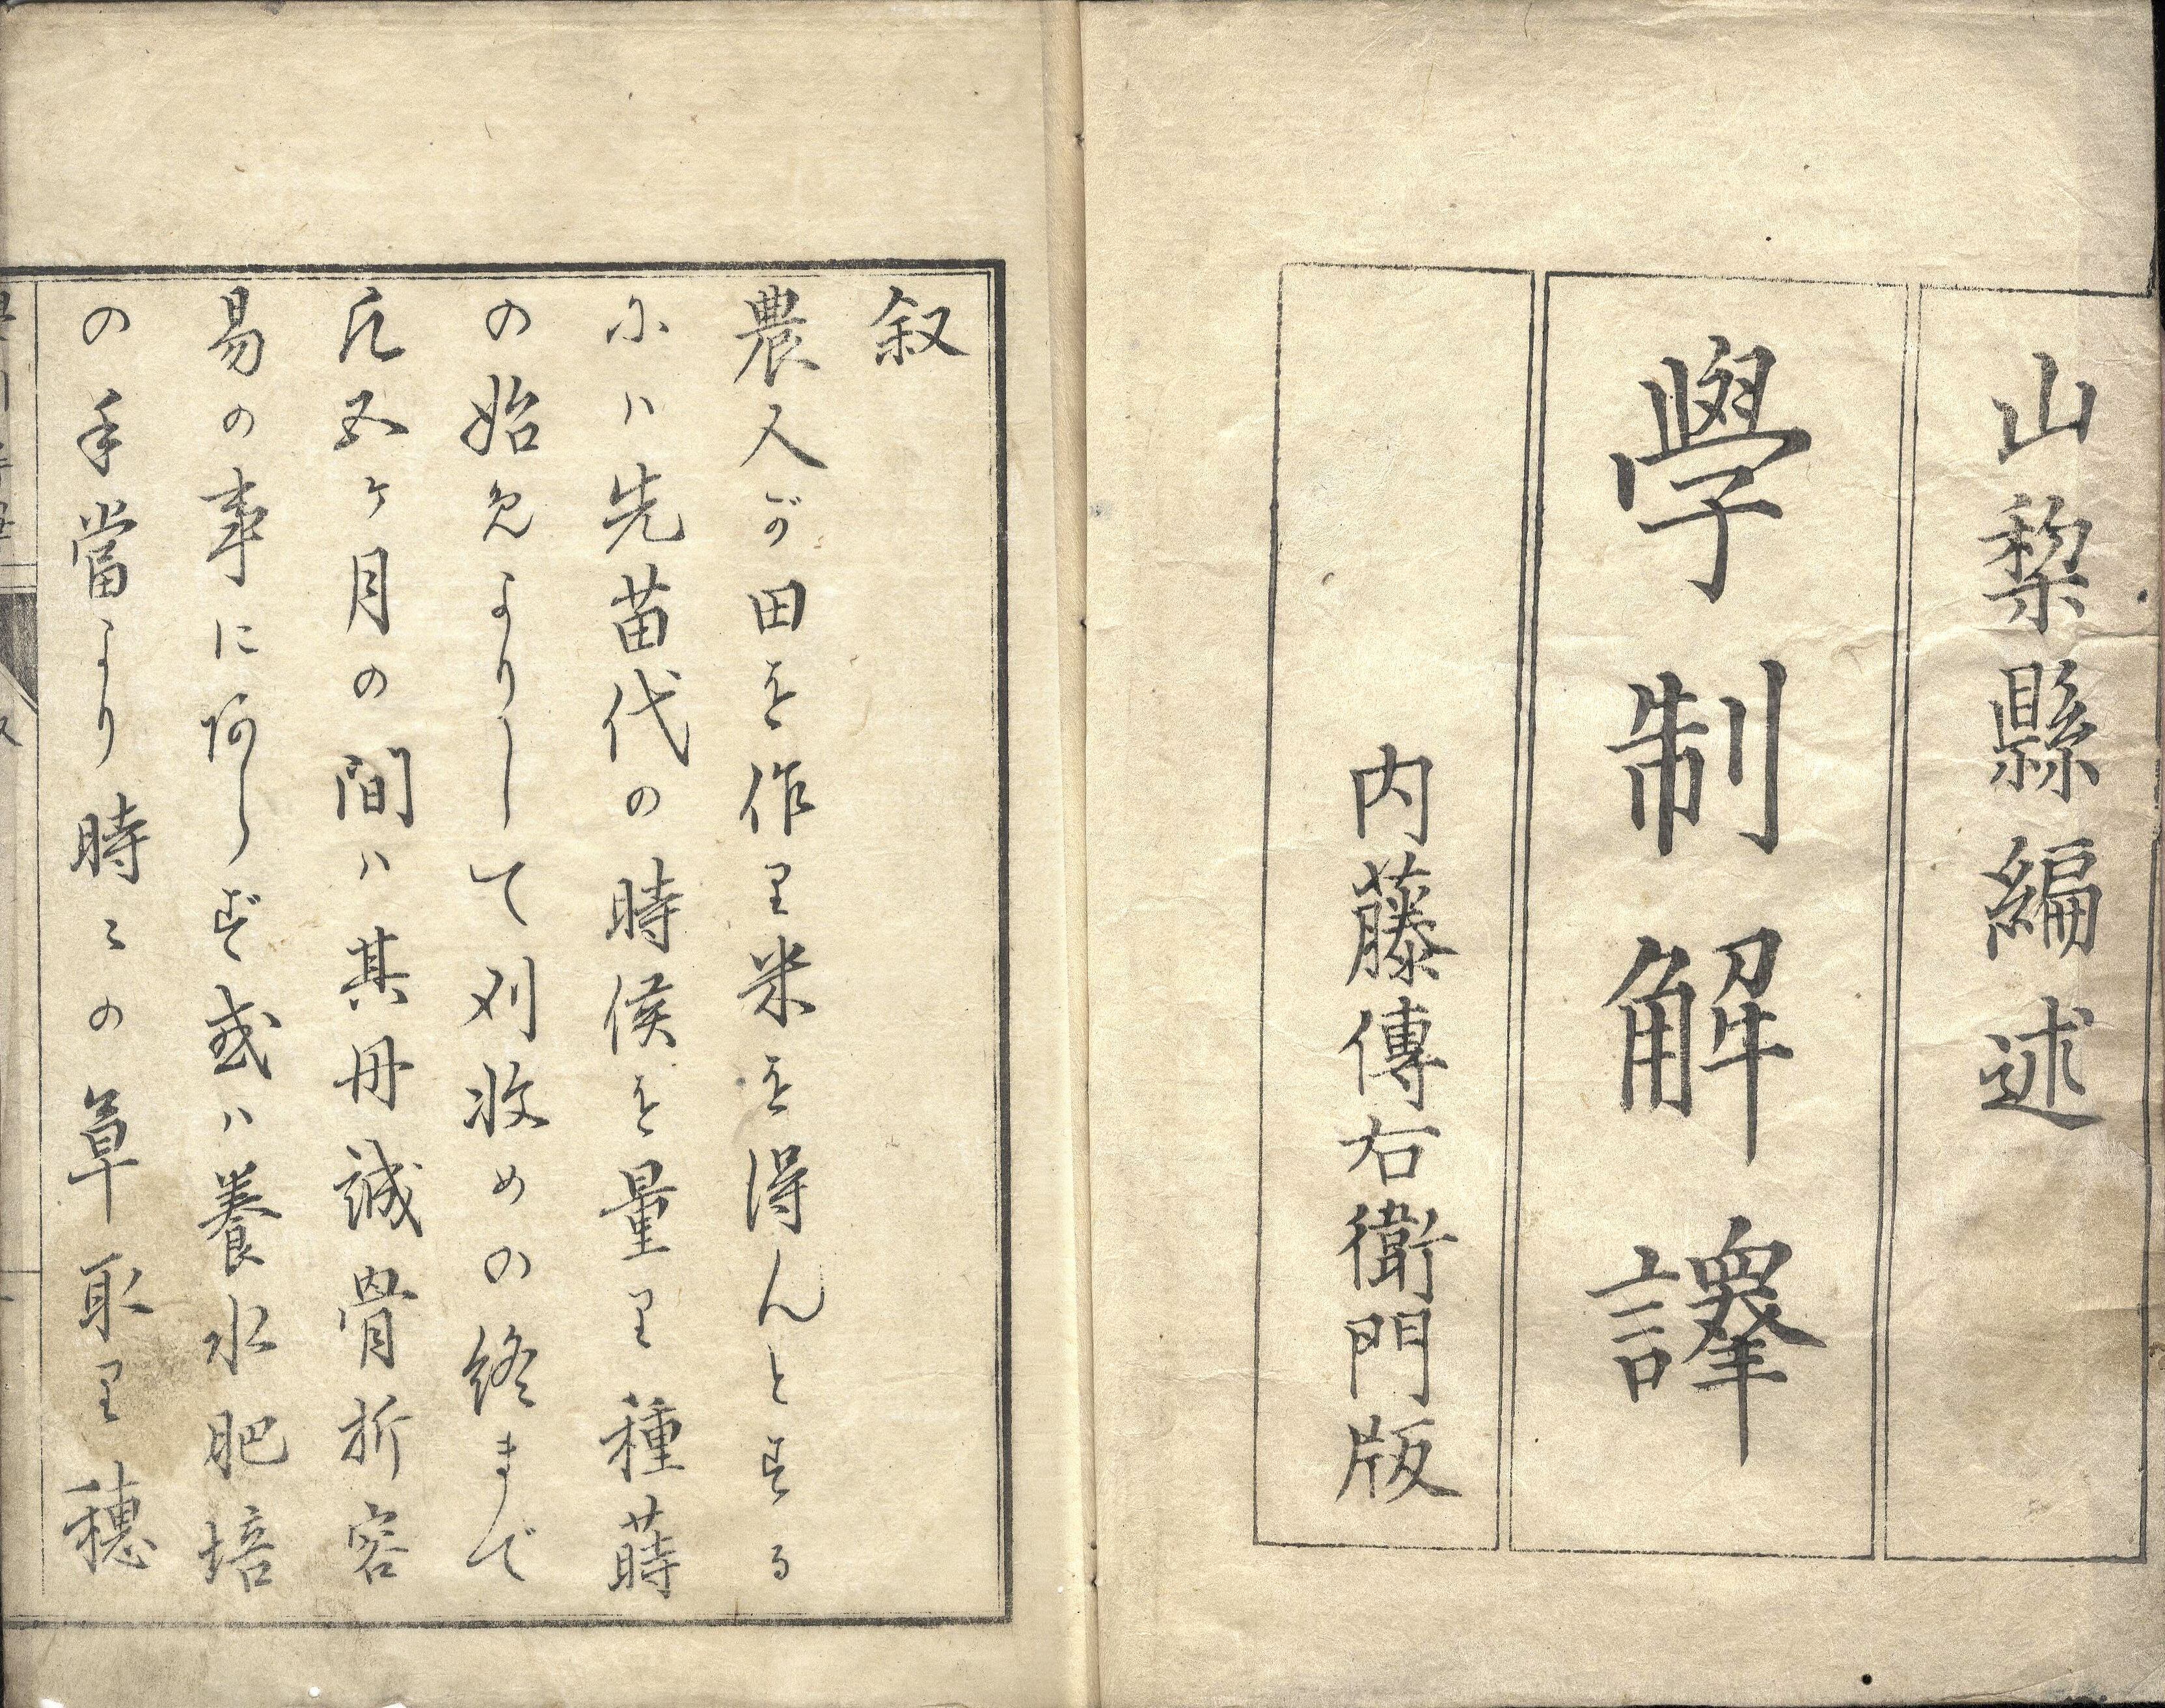 山黎縣編述
學制解譯
内藤傳右衛門版
叙
農人が田を作り米を得んとする
にハ先苗代の時候を量り種蒔
の始めよりして刈收めの終まで
凡五ヶ月の間ハ其丹誠骨折容
易の事に阿らず或ハ養水肥培
の手當より時〻の草取り穂